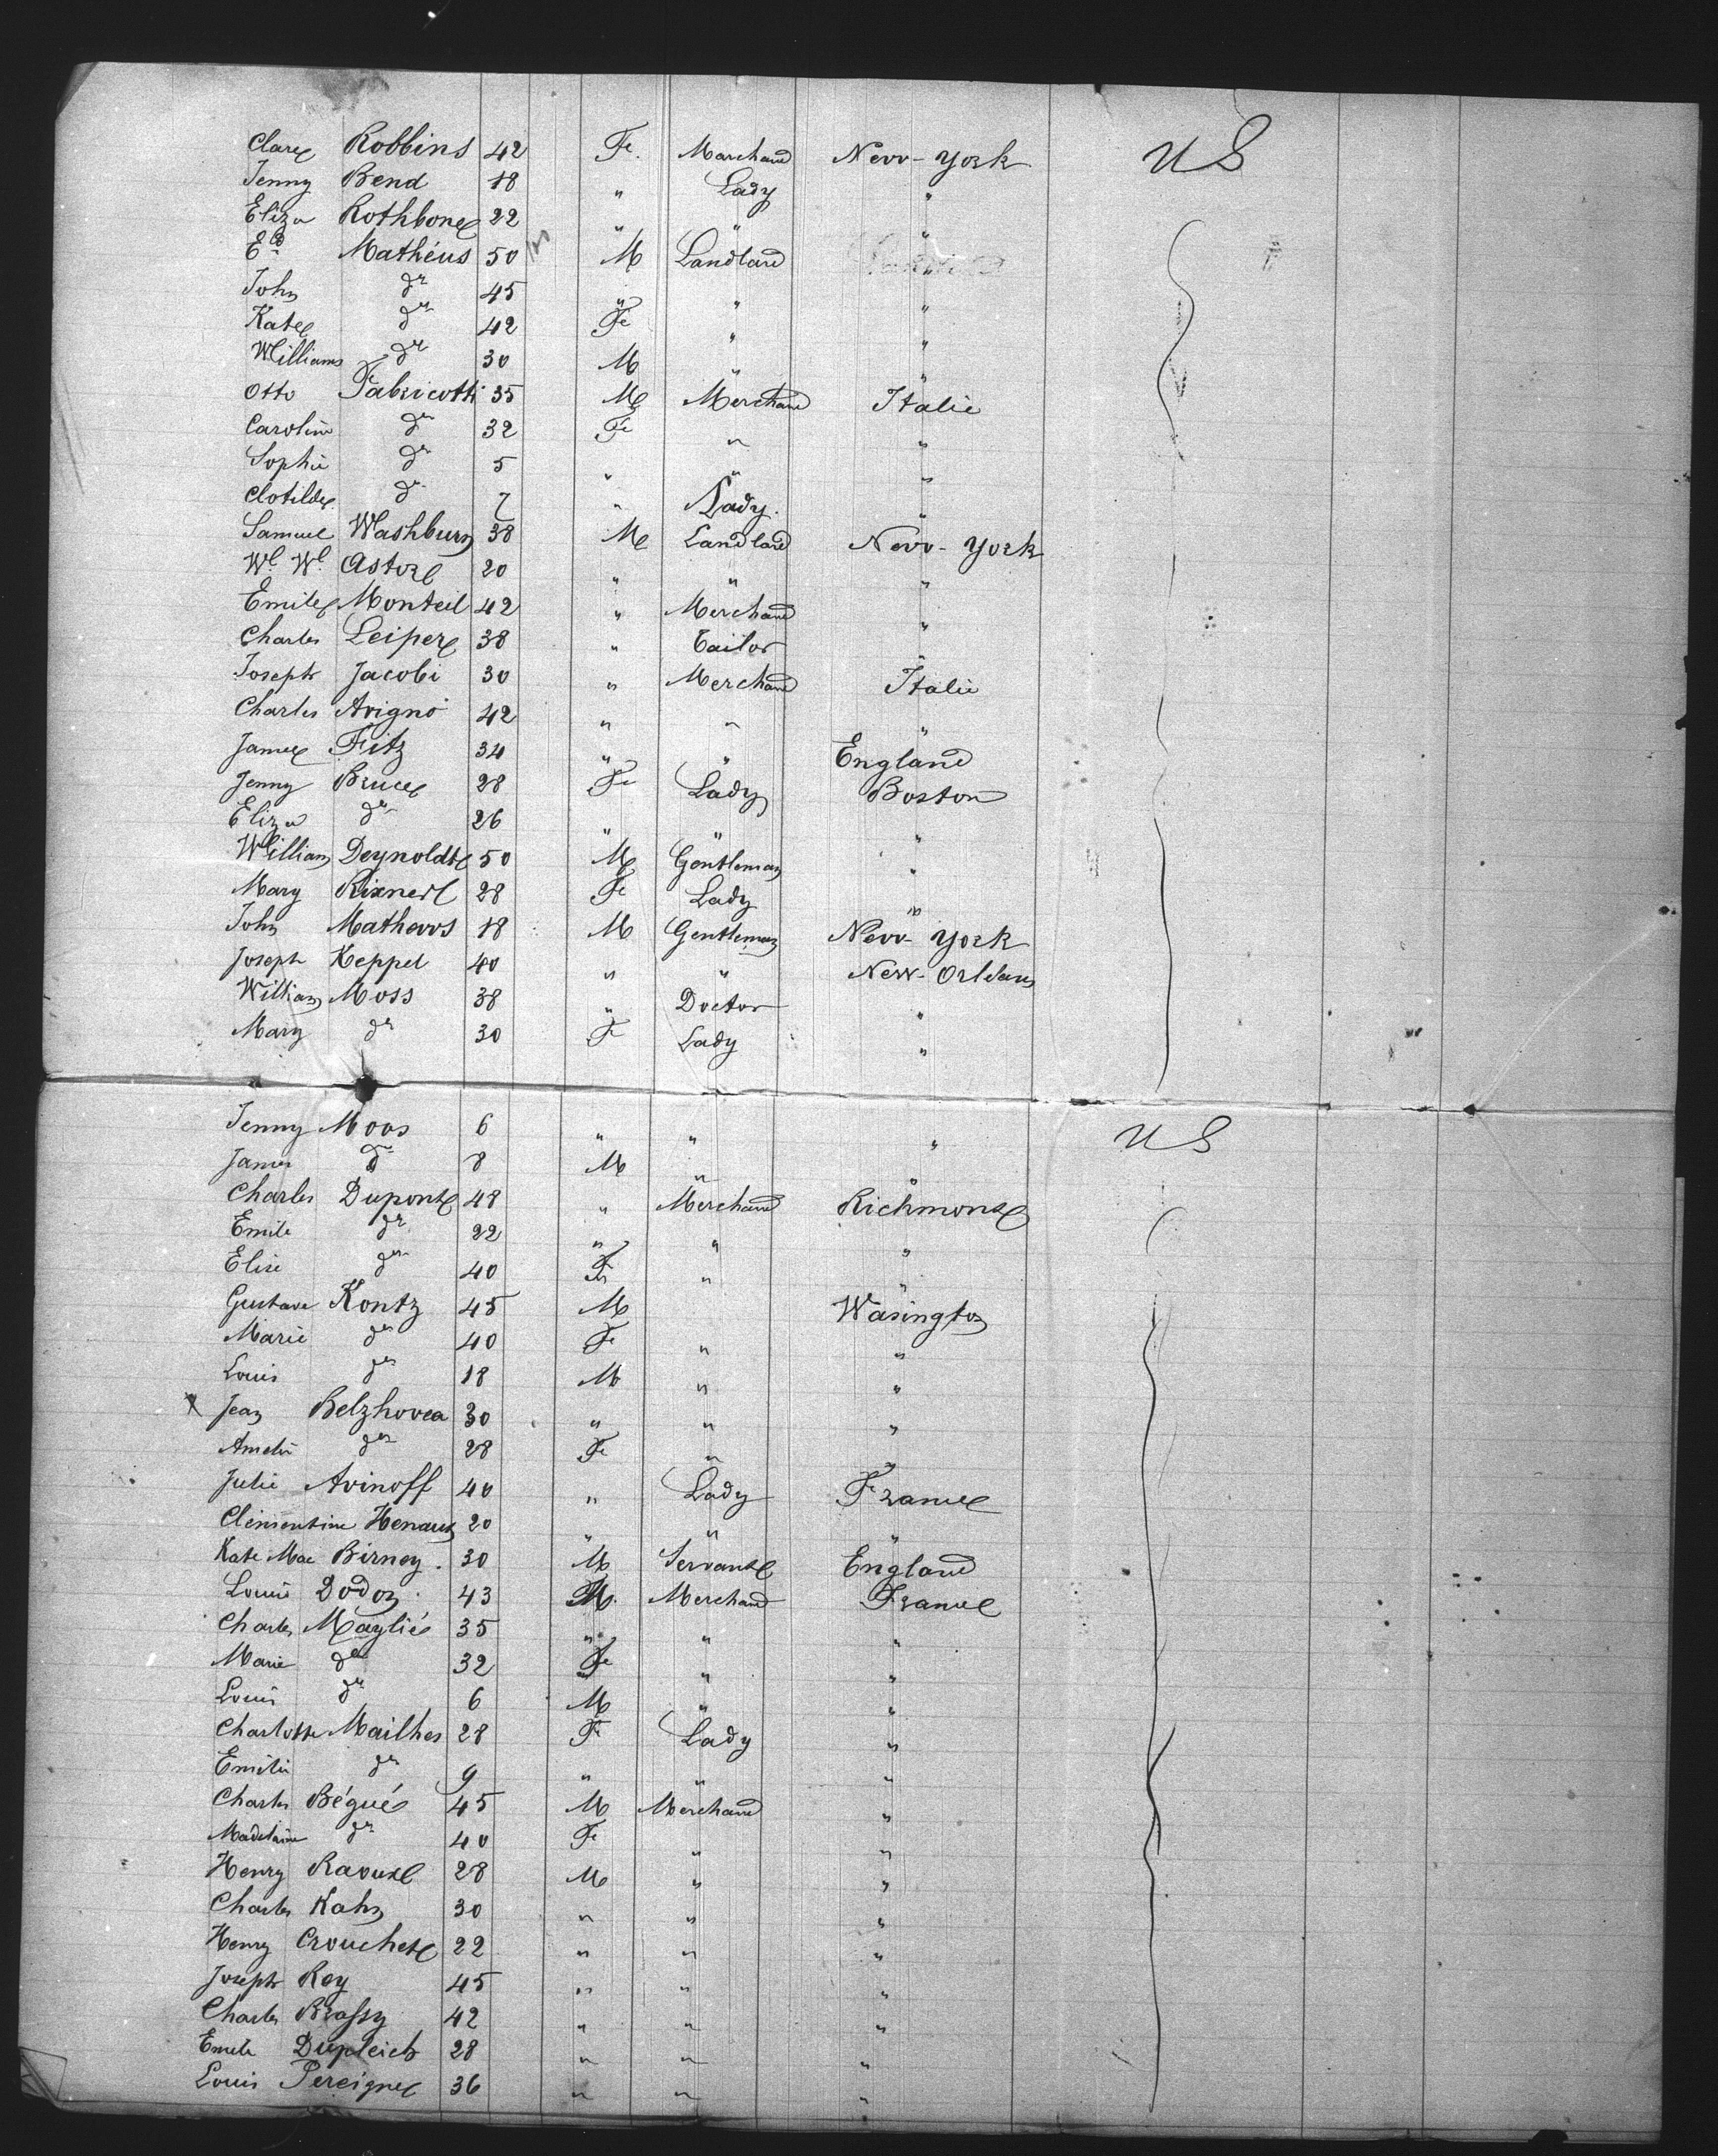 Clare Robbins 42 Fe. Marchand New-York US
Jenny Bend 18 " Lady "
Eliza Rothbone 22 " " "
Ed Mathéus 50 M Landlard "
John do 45 " " "
Kate do 42 Fe " "
Williams do 30 M " "
Otto Fabricotti 35 M Merchand Italie
Caroline do 32 Fe " "
Sophie do 5 " " "
Clotilde do 7 " Lady. "
Samuel Washburn 38 M Landlard New-York
Wl Wl Astor 20 " " "
Emile Monteil 42 " Merchand "
Charles Leiper 38 " Tailor "
Joseph Jacobi 30 " Merchand Italie
Charles Avigno 42 " " "
James Fitz 34 " " England
Jenny Bruce 28 Fe Lady Boston
Eliza do 26 " " "
William Deynoldt 50 M Gentleman "
Mary Rixner 28 Fe Lady "
John Mathews 18 M Gentleman New-York
Joseph Keppel 40 " " New-Orleans
William Moss 38 " Doctor "
Mary do 30 F Lady "
Jenny Moos 6 " " " US
James do 8 M " "
Charles Dupont 48 " Merchand Richmond
Emile do 22 " " "
Elise do 40 Fe " "
Gustave Kontz 45 M Wasington
Marie do 40 Fe " "
Louis do 18 M " "
x Jean Belzhovea 30 " " "
Amelie do 28 Fe " "
Julie Avinoff 40 " Lady France
Clémentine Henaux 20 " " "
Kate Mac Birney. 30 M Servant England
Louis Dodon. 43 M. Merchand France
Charles Maylié 35 " " "
Marie do 32 Fe " "
Louis do 6 M " "
Charlotte Mailhes 28 F Lady "
Emilie do 9 " " "
Charles Bégué 45 M Merchand "
Madelaine do 40 Fe " "
Henry Raoust 28 M " "
Charles Kahn 30 " " "
Henry Crouchet 22 " " "
Joseph Rey 45 " " "
Charles Brassy 42 " " "
Emile Dupleich 28 " " "
Louis Pereigne 36 " " "